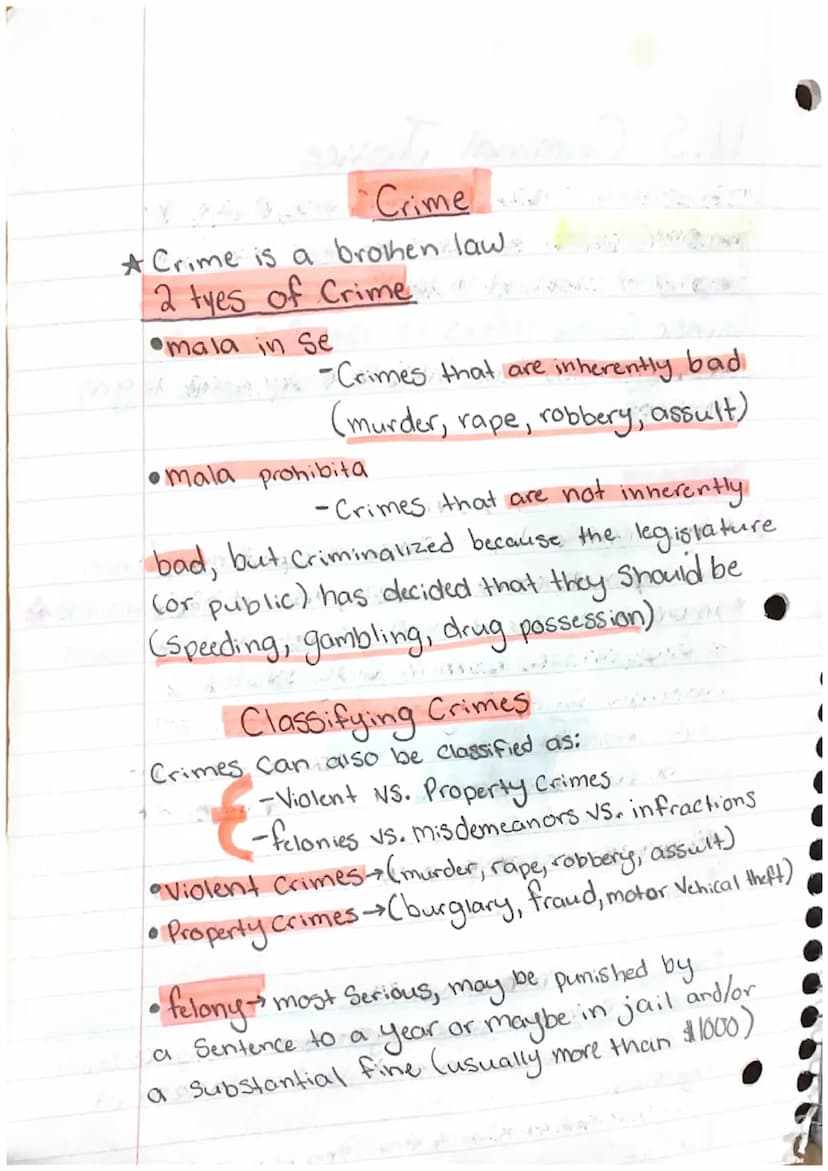 Crime
★ Crime is a broken law
2 tyes of Crime
• mala in se
- Crimes that are inherently bad
(murder, rape, robbery, assult)
• mala prohibita
- Crimes that are not inherently
bad, but criminalized because the legislature
(or public) has decided that they should be
(speeding, gambling, drug possession)
Classifying Crimes
Crimes can also be classified as:
- Violent vs. Property Crimes
- felonies vs. misdemeanors vs. infractions
• Violent Crimes → (murder, rape, robbery, assult)
• Property Crimes → (burglary, fraud, motor Vehical theft)
• felony → most serious, may be punished by
a sentence to a year or maybe in jail and/or
a substantial fine (usually more than $1000)